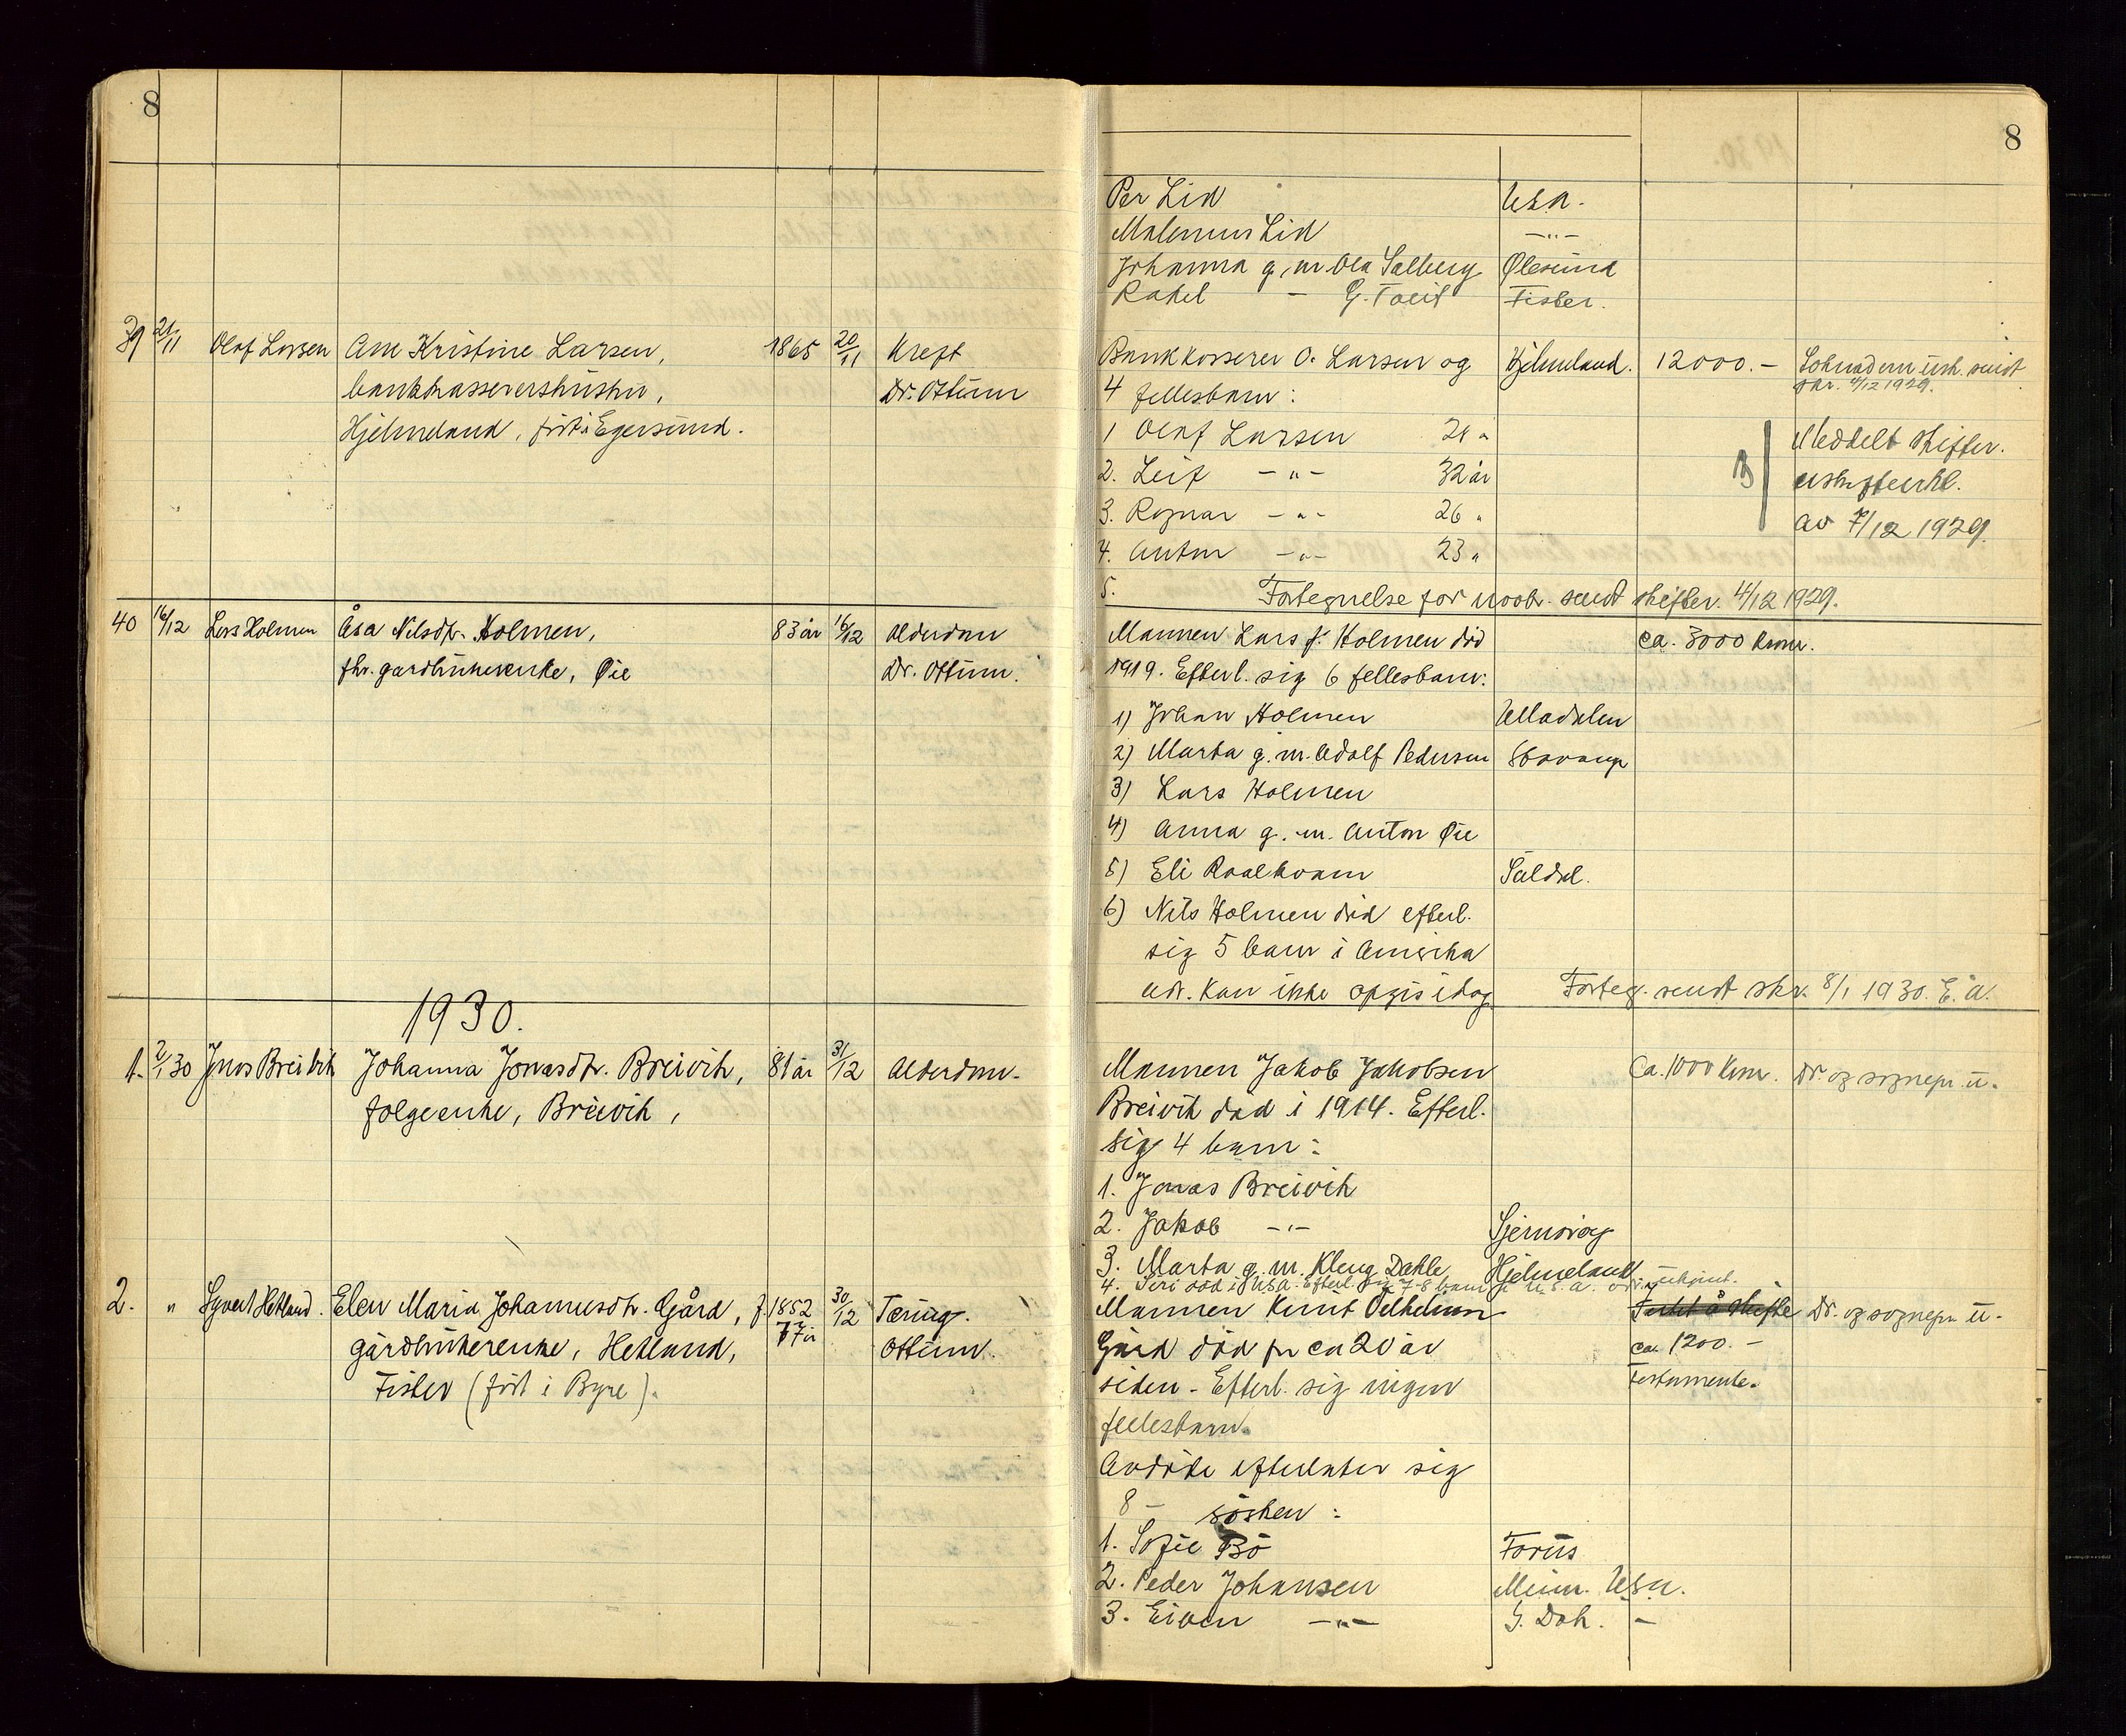 8
39 21/11 Olaf Larsen Ane Kristine Larsen, 1865 20/11 Kreft
bankkasserershustru, Dr. Ottum
Hjelmeland, født i Egersund.
40 16/12 Lars Holmen Åsa Nilsdtr. Holmen, 83 år 16/12 Alderdom
fhv. gardbrukerenke, Øie Dr. Ottum.
1930.
1. 2/1 30 Jonas Breivik Johanna Jonasdtr. Breivik, 81 år 31/12 Alderdom.
folgeenke, Breivik,
2. " Syvert Hetland. Elen Maria Johannesdtr. Gård, f. 1852 30/12 Tæring.
gårdbrukerenke, Hetland, 77 år Ottum.
Fister (født i Byre).
8
Per Lid Usa.
Malenus Lid -"-
Johanna g. m. Ola Salberg Ølesund
Rakel - G. Fister.
Bankkasserer O. Larsen og Hjelmeland. 12000.-
4 fellesbarn: skr. 4/12 1929.
1 Olaf Larsen Meddelt skifter.
2. Leif -"- 32 år
3. Ragnar -"- 26 " av 7/12 1929.
4. Anton -"- 23 "
5. Fortegnelse for sendt skifter. 4/12 1929.
Mannen Lars J. Holmen død ca. 3000 kroner.
1919. Efterl. sig 6 fellesbarn:
1) Johan Holmen Ulladalen
2) Marta g. m. Adolf Pedersen Stavanger
3) Lars Holmen
4) Anna g. m. Anton Øie
5) Eli Raalkvam Suldal.
6) Nils Holmen død efterl.
sig 5 barn i Amerika
adr. kan ikke opgis idag. Forteg. sendt skr. 8/1 1930. E. Å.
Mannen Jakob Jakobsen Ca. 1000 kroner. Dr. og sognepr. u.
Breivik død i 1914. Efterl.
sig 4 barn:
1. Jonas Breivik
2. Jakob -"- Sjernarøy
3. Marta g. m. Kleng Dahle Hjelmeland
4. Siri død i USA. Efterl. sig 7-8 barn i U.S.A. adr. ukjent.
Mannen Knut Vilhelmsen Dr. og sognepr. u.
Gård død for ca 20 år ca. 1200.-
siden. Efterl. sig ingen Testamente.
fellesbarn.
Avdøde efterlater sig
8 - søsken:
1. Sofie Bø Forus
2. Peder Johansen Minn. USA.
3. Eiven -"- S. Dak. -